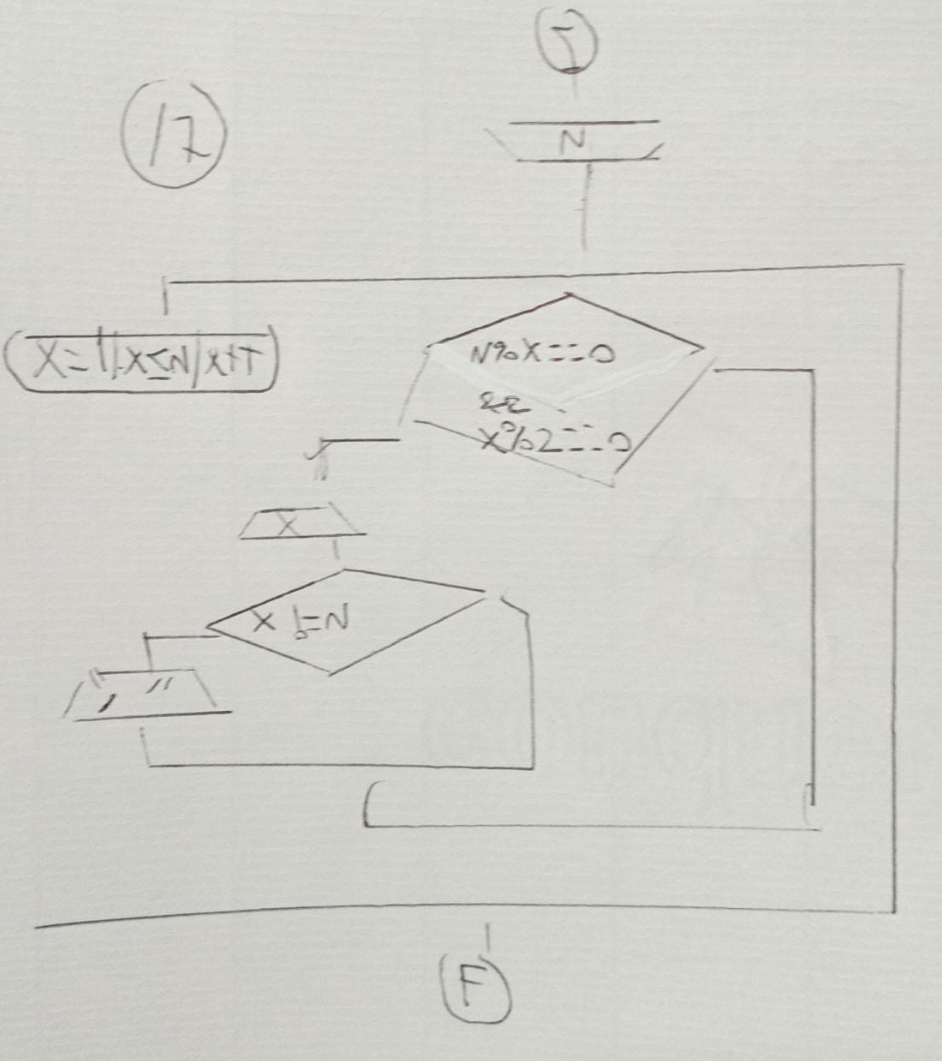 I
17
N
X=1/X≤N/X++
N%X==0
&&
X%2==0
X
X !=N
" , "
F